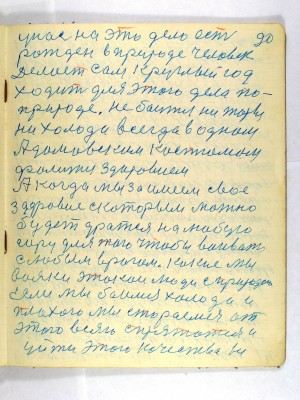 у нас на это дело есть 90
рожден в природе человек
делает сам круглый год
ходит для этого дела по-
природе. не боится ни жары
ни холода всегда в одном
Адамовским костюмом
здоровием
А когда мы заимеем свое
здоровие с которым можно
будет дратся на любую
для того чтобы
с любым врагом. какие мы
вояки этакои люди с природою
Если мы боимся холода и
плохого мы стараемся от
этого всего спрятатся и
уйти этого качества ни